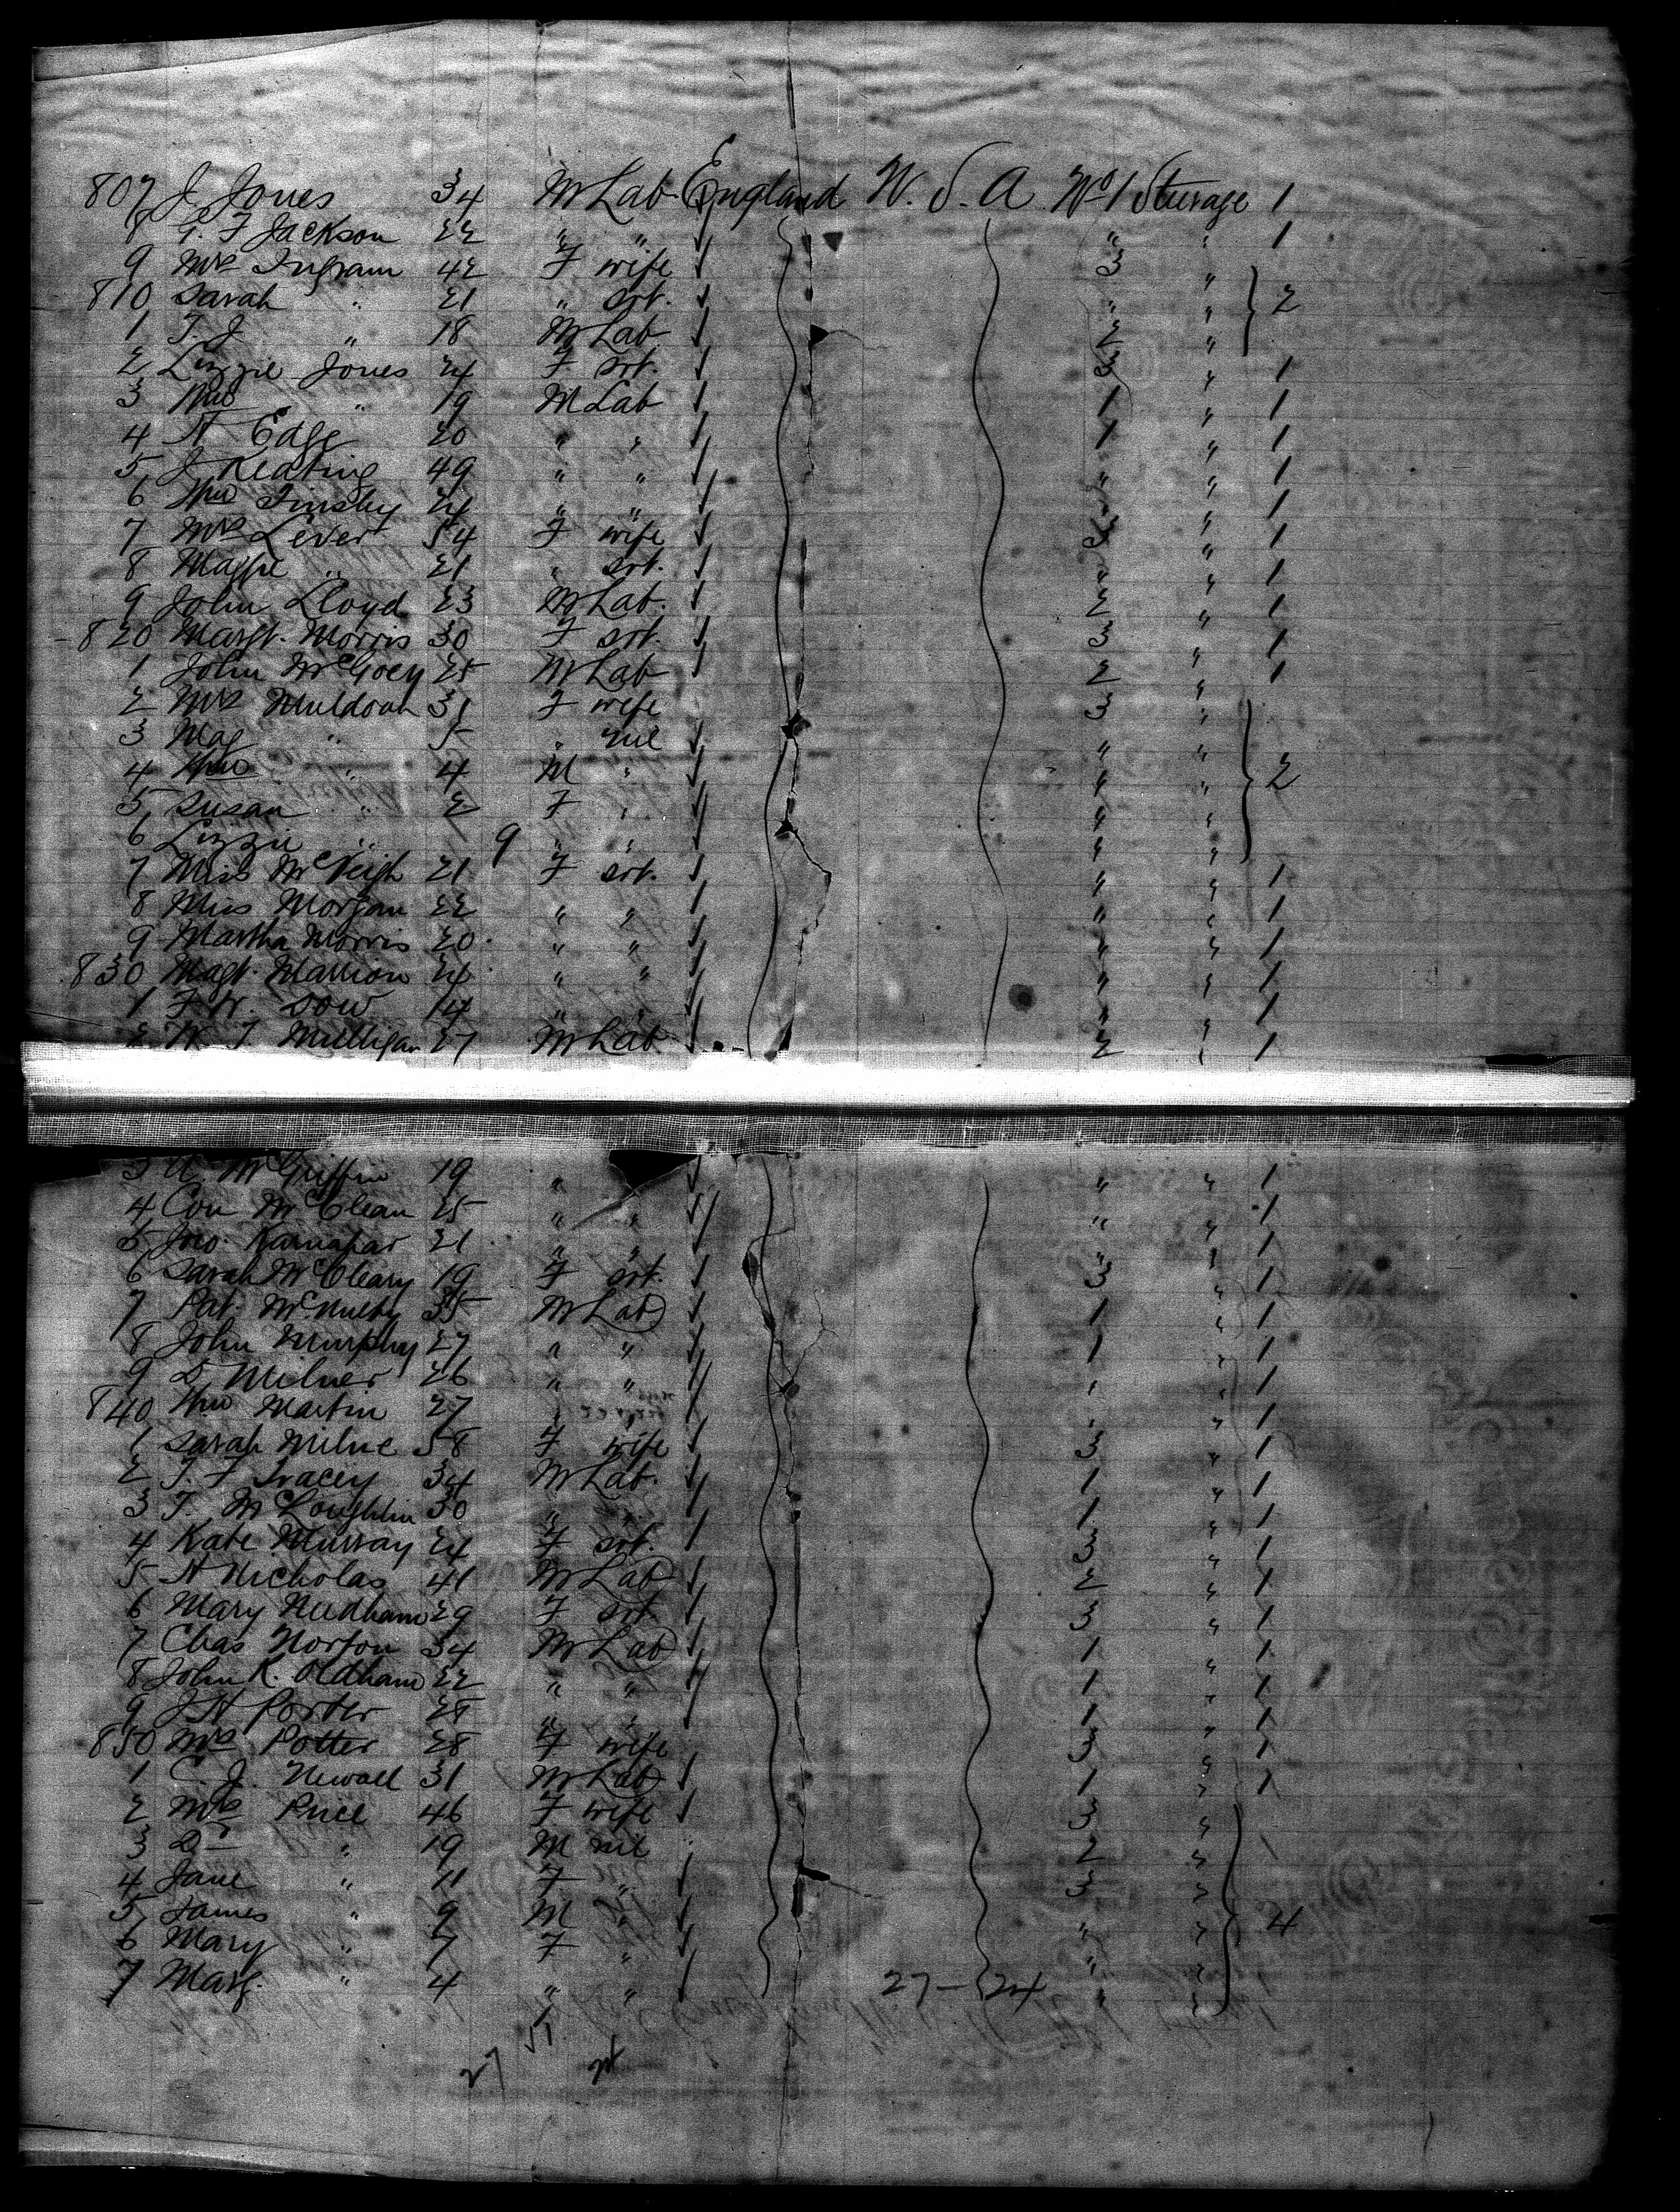 807 J. Jones 34 M Lab England U. S. A No 1 Steerage 1
8 G. F Jackson 22 " " " " 1
9 Mrs Ingram 42 F wife 3 "
810 Sarah " 21 " srt. " " 2
1 T. J " 18 M Lab 2 "
2 Lizzie Jones 24 F srt. 3 " 1
3 Wm " 19 M Lab 1 " 1
4 H Edge 20 " " 1 " 1
5 J Keating 49 " " " " 1
6 Wm Tinsley 24 " " " " 1
7 Mrs Lever 54 F wife 3 " 1
8 Maggie " 21 " srt. " " 1
9 John Lloyd 23 M Lab. 2 " 1
820 Margt. Morris 30 F srt. 3 " 1
1 John McGoey 25 M Lab 2 " 1
2 Mrs Muldoon 31 F wife 3 "
3 Mag " 5 " nil " "
4 Wm " 4 M " " " 2
5 Susan " 2 F " " "
6 Lizzie " 9 " " " "
7 Miss McVeigh 21 F srt. " " 1
8 Miss Morgan 22 " " " " 1
9 Martha Morris 20 " " " " 1
830 Magt. Mallion 24 " " " " 1
1 F W. Sow 14 " " " " 1
2 W. T Milligan 27 M Lab 2 " 1
3 A McGriffin 19 " " " 1
4 Con McClean 25 " " " " 1
5 Jno. 21 " " " 1
6 Sarah McCleary 19 F srt. 3 " 1
7 Pat. McNulty 35 M Lab 1 " 1
8 John Murphy 27 " " 1 " 1
9 D Milner 26 " " " " 1
840 Wm Martin 27 " " " " 1
1 Sarah Milne 58 F wife 3 " 1
2 T. F Tracey 34 M Lab. 1 " 1
3 T. McLoughlin 30 " 1 " 1
4 Kate Murray 24 F srt. 3 " 1
5 H Nicholas 41 M Lab 2 " 1
6 Mary Needham 29 F srt 3 " 1
7 Chas Norton 34 M Lab 1 " 1
8 John K. Oldham 22 " " 1 " 1
9 J H Porter 25 " " 1 " 1
850 Mrs Potter 28 F wife 3 " 1
1 C. J. Newall 31 M Lab 1 " 1
2 Mrs Price 46 F wife 3 "
3 D " 19 M nil 2 "
4 Jane " 11 F " 3 "
5 James " 9 M " " " 4
6 Mary " 7 F " " "
7 Marg. " 4 " " 27 – 24 " "
51
27 24